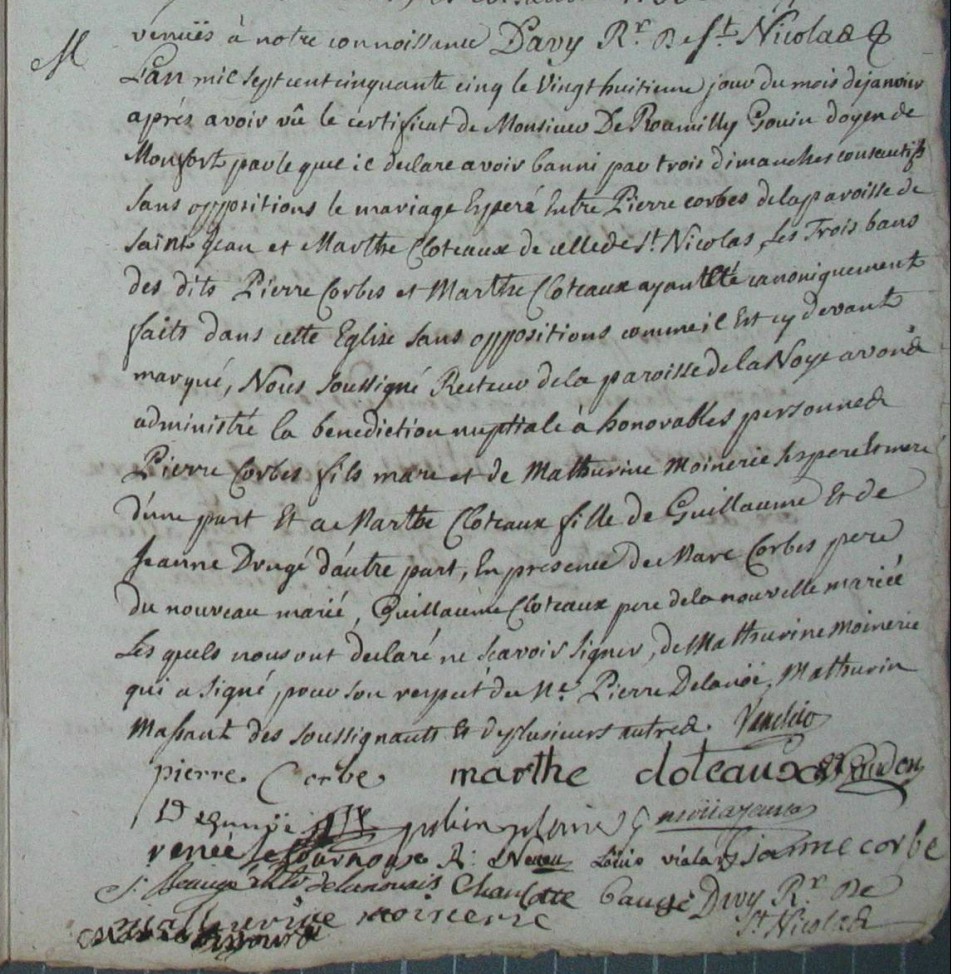 venuës à notre connoissance Davy Rr. De St. Nicolas
M
L'an mil sept cent cinquante cinq le Vingt huitieme jour du mois de janvier
aprés avoir vû le certificat de Monsieur De Roumilly Gouin doyen de
Monfort par le quel il declare avoir banni par trois dimanches consecutifs
sans oppositions le mariage Esperé Entre Pierre corbes de la paroisse de
saint Jean et Marthe Cloteaux de celle de St. Nicolas, Les Trois bans
des dits Pierre Corbes et Marthe Cloteaux ayant Eté canoniquement
faits dans cette Eglise sans oppositions comme il Est cy devant
marqué, Nous soussigné Recteur de la paroisse de la Noye avons
administré la benediction nuptiale à honorables personnes
Pierre Corbes fils marc et de Mathurine Moinerie ses pere Et mere
d'une part Et a Marthe Cloteaux fille de Guillaume Et de
Jeanne Drugé d'autre part, En presence de Marc Corbes pere
du nouveau marié, Guillaume Cloteaux pere de la nouvelle mariée
Les quels nous ont declaré ne sçavoir signer, de Mathurine Moinerie
qui a signé, pour son respect de Me. Pierre Delanöe, Mathurin
Massant des soussignants Et de plusieurs autres.
pierre Corbe marthe cloteaux
renée Le R: Louis vialar jeanne corbe
delanouais Charlotte Daugé Davy Rr. De
mathurine moinerie St. Nicolas